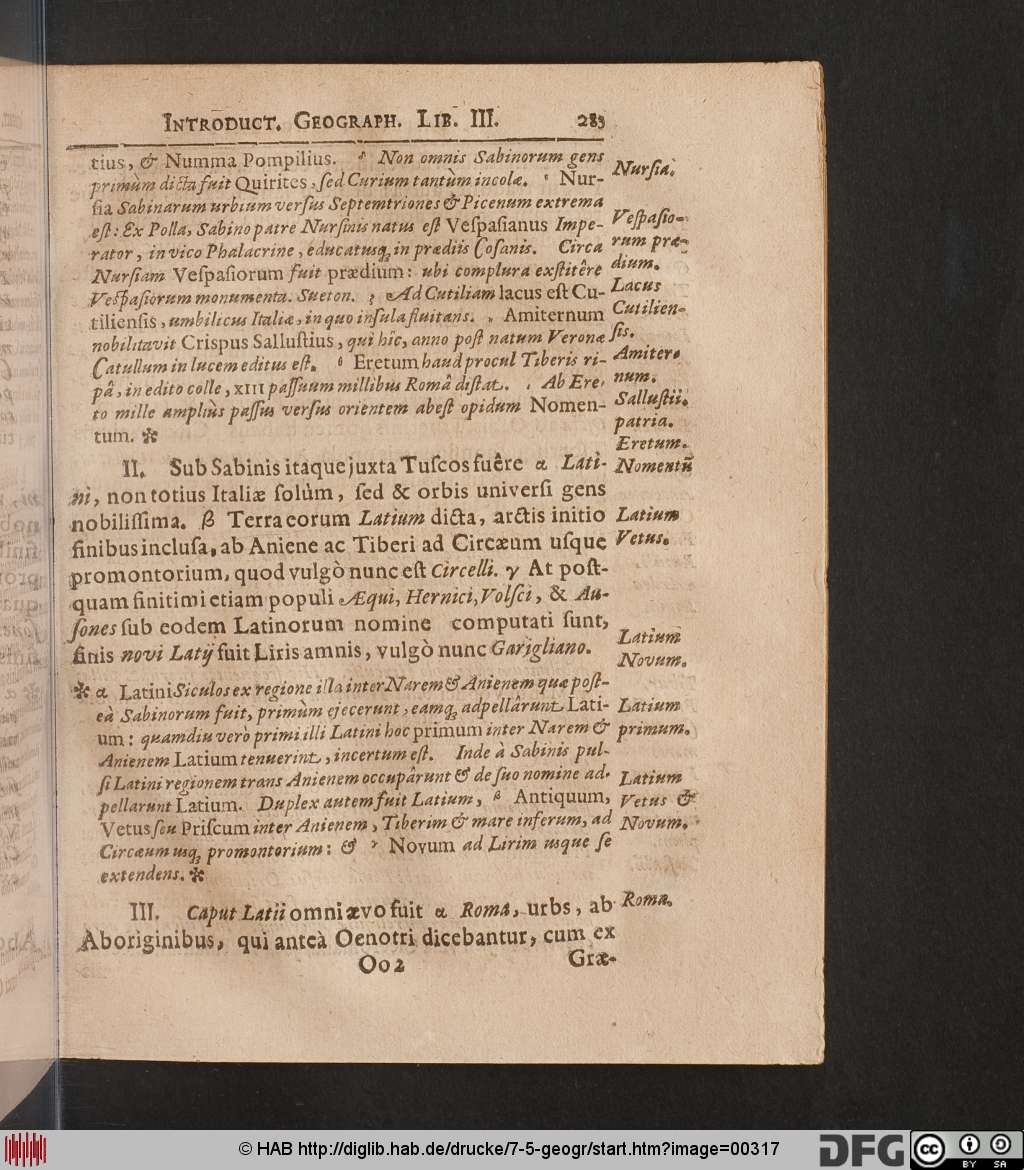 INTRODUCT. GEOGRAPH. LIB. III. 283
tius, & Numma Pompilius. Non omnis Sabinorum gens
primùm dicta fuit Quirites, sed Curium tantùm incolæ. Nur-
sia Sabinarum urbium versus Septemtriones & Picenum extrema
est: Ex Polla, Sabino patre Nursinis natus est Vespasianus Impe-
rator, in vico Phalacrine, educatusq; in prædiis Cosanis. Circa
Nursiam Vespasiorum fuit prædium: ubi complura exstitêre
Vespasiorum monumenta. Sueton. ζ Ad Cutiliam lacus est Cu-
tiliensis, umbilicus Italiæ, in quo insula fluitans. Amiternum
nobilitavit Crispus Sallustius, qui hîc, anno post natum Veronæ
Catullum in lucem editus est. θ Eretum haud procul Tiberis ri-
pâ, in edito colle, XIII passuum millibus Româ distat. ι Ab Ere-
to mille ampliùs passus versus orientem abest opidum Nomen-
tum. ✻
Nursia.
Vespasio-
rum præ-
dium.
Lacus
Cutilien-
sis.
Amiter-
num.
Sallustii
patria.
Eretum.
Nomentū
II. Sub Sabinis itaque juxta Tuscos fuêre α Lati-
ni, non totius Italiæ solùm, sed & orbis universi gens
nobilissima. β Terra eorum Latium dicta, arctis initio
finibus inclusa, ab Aniene ac Tiberi ad Circæum usque
promontorium, quod vulgò nunc est Circelli. γ At post-
quam finitimi etiam populi Æqui, Hernici, Volsci, & Au-
sones sub eodem Latinorum nomine computati sunt,
finis novi Latij fuit Liris amnis, vulgò nunc Garigliano.
Latium
Vetus.
Latium
Novum.
✻ α Latini Siculos ex regione illa inter Narem & Anienem quæ post-
eà Sabinorum fuit, primùm ejecerunt, eamq; adpellârunt Lati-
um: quamdiu verò primi illi Latini hoc primum inter Narem &
Anienem Latium tenuerint, incertum est. Inde à Sabinis pul-
si Latini regionem trans Anienem occupârunt & de suo nomine ad-
pellarunt Latium. Duplex autem fuit Latium, β Antiquum,
Vetus seu Priscum inter Anienem, Tiberim & mare inferum, ad
Circæum usq; promontorium: & γ Novum ad Lirim usque se
extendens. ✻
Latium
primum.
Latium
Vetus &
Novum.
III. Caput Latii omni ævo fuit α Roma, urbs, ab
Aboriginibus, qui anteà Oenotri dicebantur, cum ex
Roma.
Oo2 Græ-
© HAB http://diglib.hab.de/drucke/7-5-geogr/start.htm?image=00317
DFG
cc
BY SA